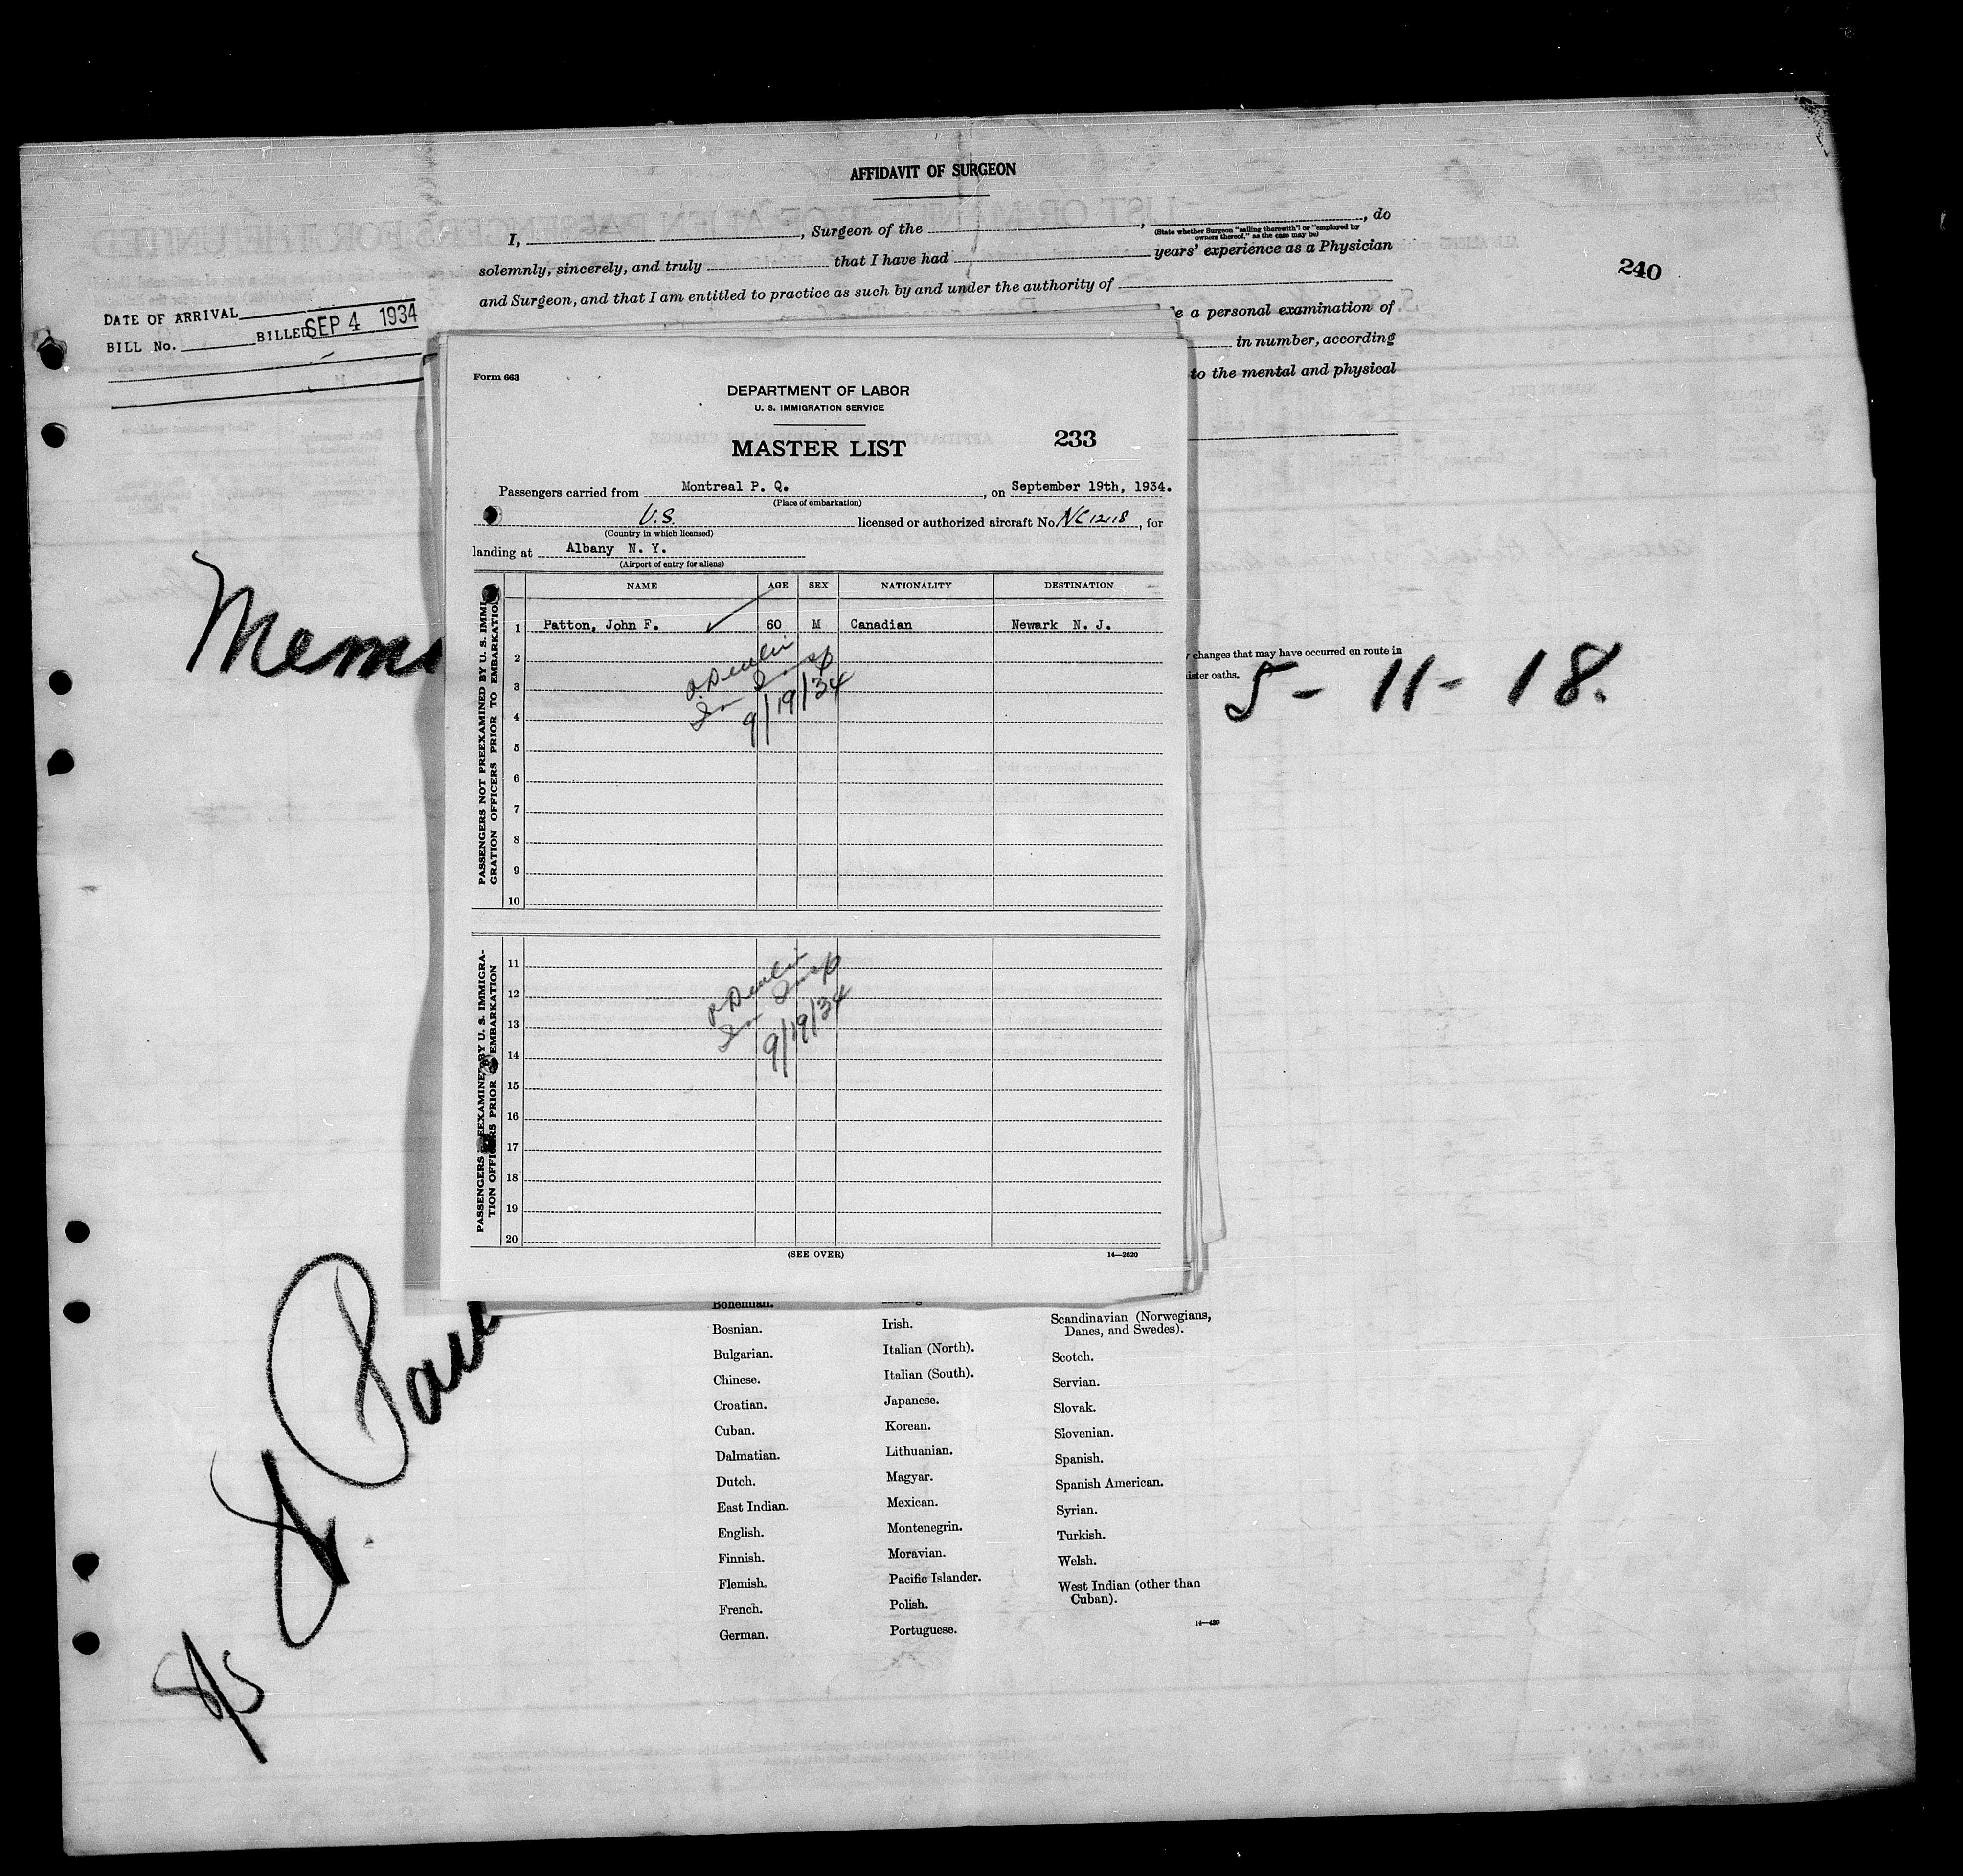 AFFIDAVIT OF SURGEON
I, , Surgeon of the , , do
(State whether Surgeon "sailing therewith" or "employed by
owners thereof," as the case may be)
solemnly, sincerely, and truly that I have had years' experience as a Physician
240
and Surgeon, and that I am entitled to practice as such by and under the authority of
DATE OF ARRIVAL
BILL No. BILLED SEP 4 1934
e a personal examination of
in number, according
to the mental and physical
Form 663
DEPARTMENT OF LABOR
U. S. IMMIGRATION SERVICE
MASTER LIST
233
Passengers carried from Montreal P. Q. , on September 19th, 1934.
(Place of embarkation)
U.S. licensed or authorized aircraft No. NC12118, for
(Country in which licensed)
landing at Albany N. Y.
(Airport of entry for aliens)
NAME AGE SEX NATIONALITY DESTINATION
PASSENGERS NOT PREEXAMINED BY U. S. IMMI-
GRATION OFFICERS PRIOR TO EMBARKATION
1 Patton, John F. 60 M Canadian Newark N. J.
2
3
4
9/19/34
5
6
7
8
9
10
changes that may have occurred en route in
ister oaths.
5-11-18.
PASSENGERS PREEXAMINED BY U. S. IMMIGRA-
TION OFFICERS PRIOR TO EMBARKATION
11
12
13
14
9/19/34
15
16
17
18
19
20
(SEE OVER)
14—2620
Bohemian.
Bosnian.
Bulgarian.
Chinese.
Croatian.
Cuban.
Dalmatian.
Dutch.
East Indian.
English.
Finnish.
Flemish.
French.
German.
Irish.
Italian (North).
Italian (South).
Japanese.
Korean.
Lithuanian.
Magyar.
Mexican.
Montenegrin.
Moravian.
Pacific Islander.
Polish.
Portuguese.
Scandinavian (Norwegians,
Danes, and Swedes).
Scotch.
Servian.
Slovak.
Slovenian.
Spanish.
Spanish American.
Syrian.
Turkish.
Welsh.
West Indian (other than
Cuban).
14—430